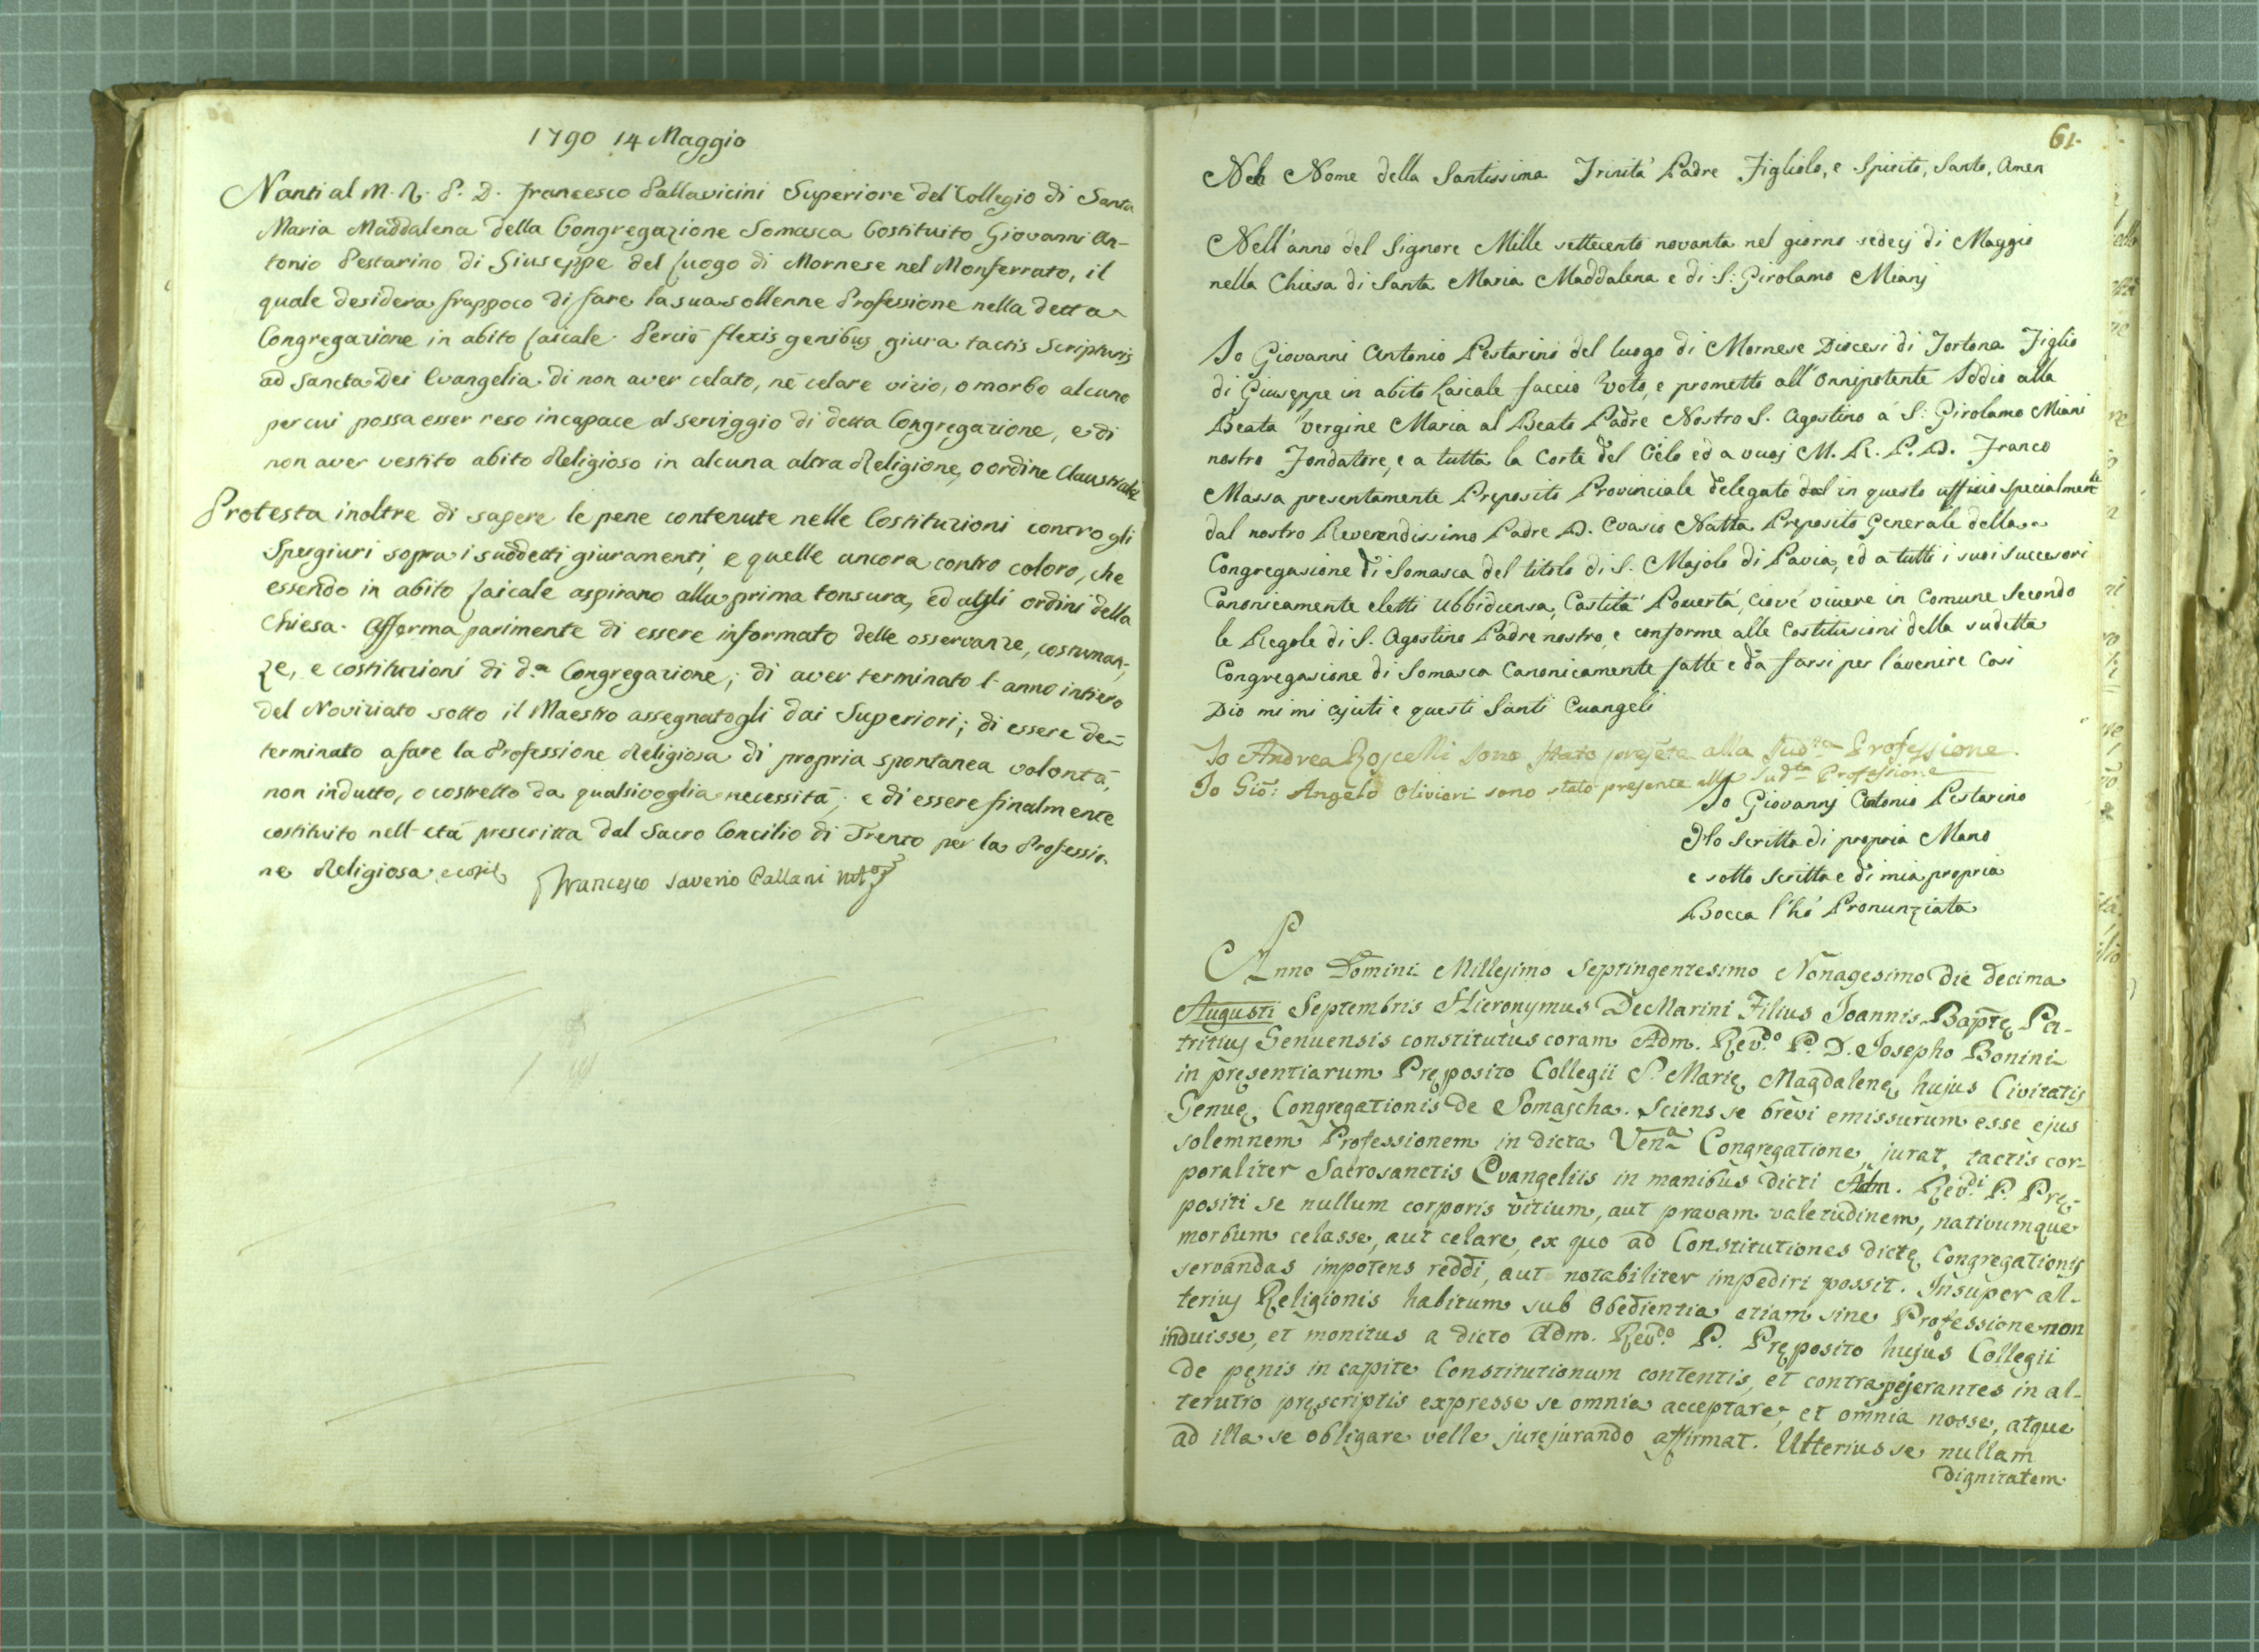 1790 14 Maggio
Nanti al M. R. P. D. Francesco Pallavicini Superiore del Collegio di Santa
Maria Maddalena della Congregazione Somasca Costituito Giovanni An-
tonio Pestarino di Giuseppe del luogo di Mornese nel Monferrato, il
quale desidera frappoco di fare la sua sollenne Professione nella detta
Congregazione in abito laicale. Perciò flexis genibus giura tactis Scripturis
ad Sancta Dei Evangelia di non aver celato, nè celare vizio, o morbo alcuno
per cui possa esser reso incapace al serviggio di detta Congregazione, e di
non aver vestito abito Religioso in alcuna altra Religione, o ordine Claustrale
Protesta inoltre di sapere le pene contenute nelle Costituzioni contro gli
Spergiuri sopra i suddetti giuramenti, e quelle ancora contro coloro, che
essendo in abito laicale aspirano alla prima tonsura, ed agli ordini della
Chiesa. Afferma parimente di essere informato delle osservanze, costuman-
ze, e costituzioni di d.a Congregazione; di aver terminato l'anno intiero
del Noviziato sotto il Maestro assegnatogli dai Superiori; di essere de-
terminato a fare la Professione Religiosa di propria spontanea volontà,
non indutto, o costretto da qualsivoglia necessità; e di essere finalmente
costituito nell'età prescritta dal Sacro Concilio di Trento per la Professio-
ne Religiosa, e così Francesco Saverio Pallani
61.
Nel Nome della Santissima Trinità Padre Figliolo, e Spirito, Santo, Amen
Nell'anno del Signore Mille settecento novanta nel giorno sedecj di Maggio
nella Chiesa di Santa Maria Maddalena e di S: Girolamo Mianj
Io Giovanni Antonio Pestarino del luogo di Mornese Diocesi di Tortona Figlio
di Giuseppe in abito Laicale faccio Voto, e prometto all'Onnipotente Iddio alla
Beata Vergine Maria al Beato Padre Nostro S. Agostino à S: Girolamo Miani
nostro Fondatore, e a tutta la Corte del Cielo ed a vuoj M. R. P. D. Franco
Massa presentamente Preposito Provinciale delegato dal in questo uffizio specialmente
dal nostro Reverendissimo Padre D. Evasio Natta Preposito Generale della
Congregasione di Somasca del titolo di S. Majolo di Pavia, ed a tutti i suoi Succesori
Canonicamente eletti Ubbidiensa, Castità Povertà, ciové vivere in Comune Secondo
le Regole di S. Agostino Padre nostro, e conforme alle Costitusioni della sudetta
Congregasione di Somasca Canonicamente fatte e da farsi per l'avenire Così
Dio mi mi ajuti e questi Santi Evangeli
Io Andrea Roscelli sono stato presente alla Sud.ta Professione.
Io Gio: Angelo Olivieri sono stato presente alla Sud.ta Professione
Io Giovannj Antonio Pestarino
Ho Scritta di propria Mano
e sotto Scritta e di mia propria
Bocca l'hò Pronunziata
Anno Domini Millesimo Septingentesimo Nonagesimo die decima
Augusti Septembris Hieronymus DeMarini Filius Joannis Baptę Pa-
tritius Genuensis constitutus coram Adm. Rev.do P. D. Josepho Bonini
in pręsentiarum Pręposito Collegii S. Marię Magdalenę hujus Civitatis
Genuę Congregationis de Somascha. Sciens se brevi emissurum esse ejus
solemnem Professionem in dicta Ven.a Congregatione, jurat, tactis cor-
poraliter Sacrosanctis Evangeliis in manibus dicti Adm. Rev.di P. Prę-
positi se nullum corporis vitium, aut pravam valetudinem, nativumque
morbum celasse, aut celare, ex quo ad Constitutiones dictę Congregationis
servandas impotens reddi, aut notabiliter impediri possit. Insuper al-
terius Religionis habitum sub Obedientia etiam sine Professione non
induisse, et monitus a dicto Adm. Rev.do P. Pręposito hujus Collegii
de pęnis in capite Constitutionum contentis, et contra pejerantes in al-
terutro pręscriptis expresse se omnia acceptare, et omnia nosse, atque
ad illa se obligare velle jurejurando affirmat. Ulterius se nullam
dignitatem